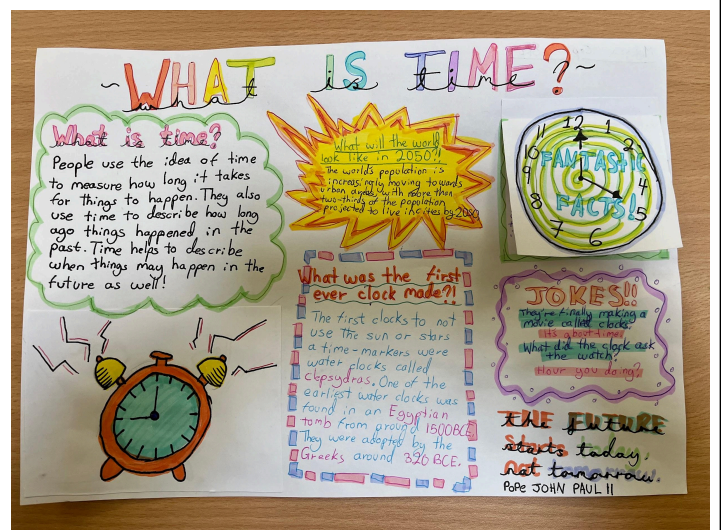 ~WHAT IS TIME?~
what is time
What is time?
People use the idea of time
to measure how long it takes
for things to happen. They also
use time to describe how long
ago things happened in the
past. Time helps to describe
when things may happen in the
future as well!
What will the world
look like in 2050?!
The world's population is
increasingly moving towards
urban areas, with more than
two-thirds of the population
projected to live in cities by 2050
What was the first
ever clock made?!
The first clocks to not
use the sun or stars
a time-markers were
water clocks called
clepsydras. One of the
earliest water clocks was
found in an Egyptian
tomb from around 1500BCE
They were adopted by the
Greeks around 320 BCE.
12
1
11
10
9
8
7
6
5
4
FANTASTIC
FACTS!
JOKES!!
They're finally making a
movie called clocks.
It's about time.
What did the clock ask
the watch?
Hour you doing?
THE FUTURE
the future
starts today
not tomorrow.
Pope JOHN PAUL II